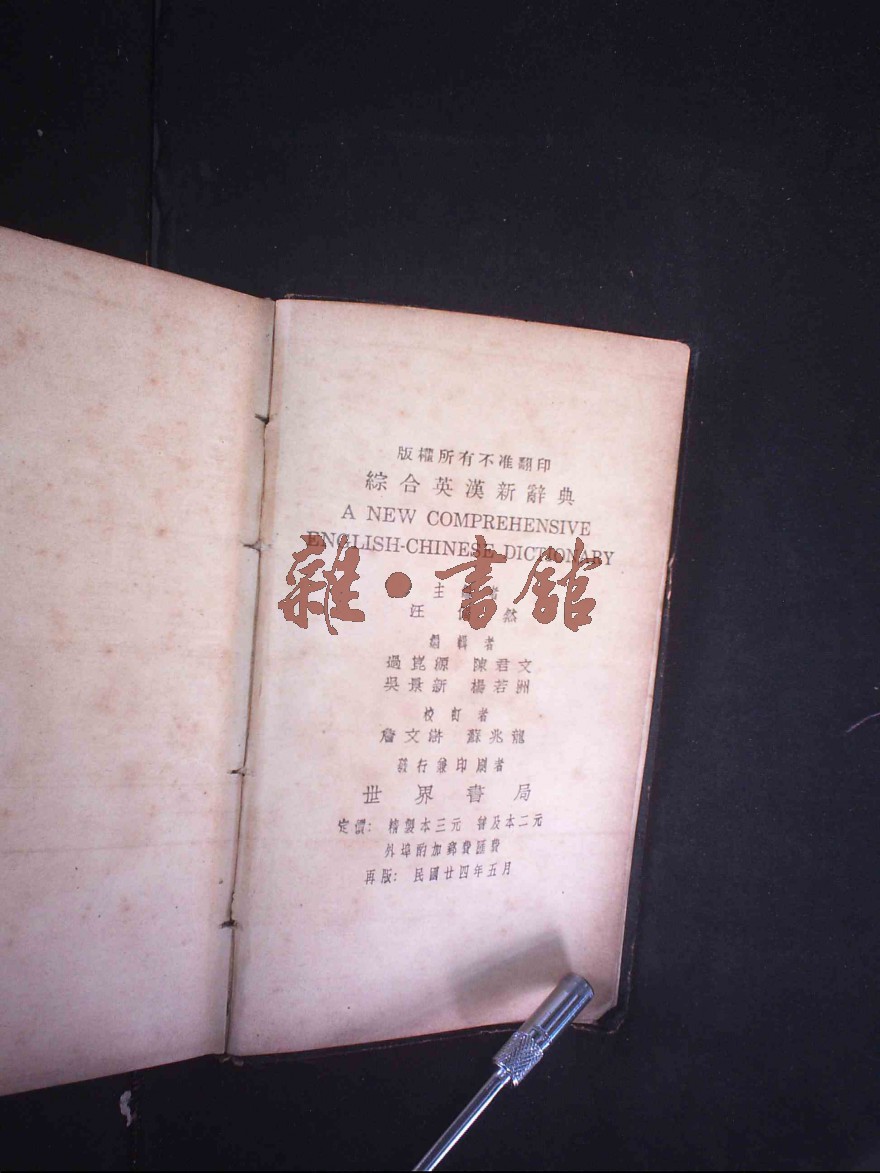 版權所有不准翻印
綜合英漢新辭典
A NEW COMPREHENSIVE
ENGLISH-CHINESE DICTIONARY
雜·書館
主 者
汪 然
編輯者
過崑源 陳君文
吳景新 楊若洲
校訂者
詹文滸 蘇兆龍
發行兼印刷者
世界書局
定價：精製本三元 普及本二元
外埠酌加郵費匯費
再版：民國廿四年五月